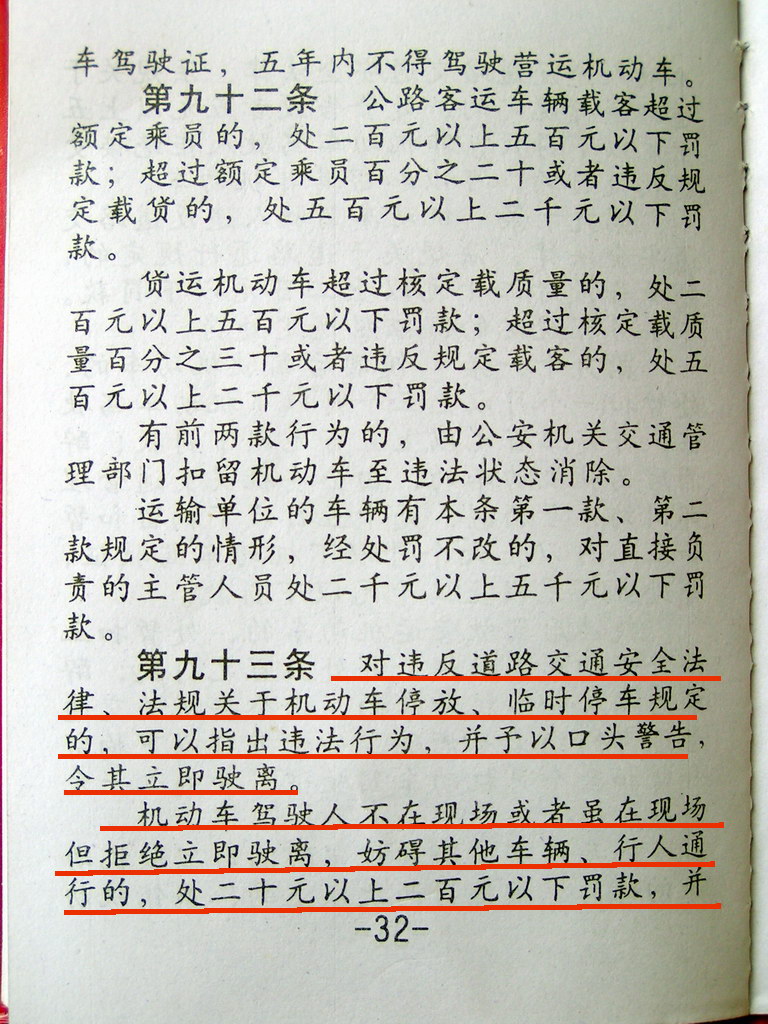 车驾驶证，五年内不得驾驶营运机动车。
第九十二条 公路客运车辆载客超过
额定乘员的，处二百元以上五百元以下罚
款；超过额定乘员百分之二十或者违反规
定载货的，处五百元以上二千元以下罚
款。
货运机动车超过核定载质量的，处二
百元以上五百元以下罚款；超过核定载质
量百分之三十或者违反规定载客的，处五
百元以上二千元以下罚款。
有前两款行为的，由公安机关交通管
理部门扣留机动车至违法状态消除。
运输单位的车辆有本条第一款、第二
款规定的情形，经处罚不改的，对直接负
责的主管人员处二千元以上五千元以下罚
款。
第九十三条 对违反道路交通安全法
律、法规关于机动车停放、临时停车规定
的，可以指出违法行为，并予以口头警告，
令其立即驶离。
机动车驾驶人不在现场或者虽在现场
但拒绝立即驶离，妨碍其他车辆、行人通
行的，处二十元以上二百元以下罚款，并
-32-